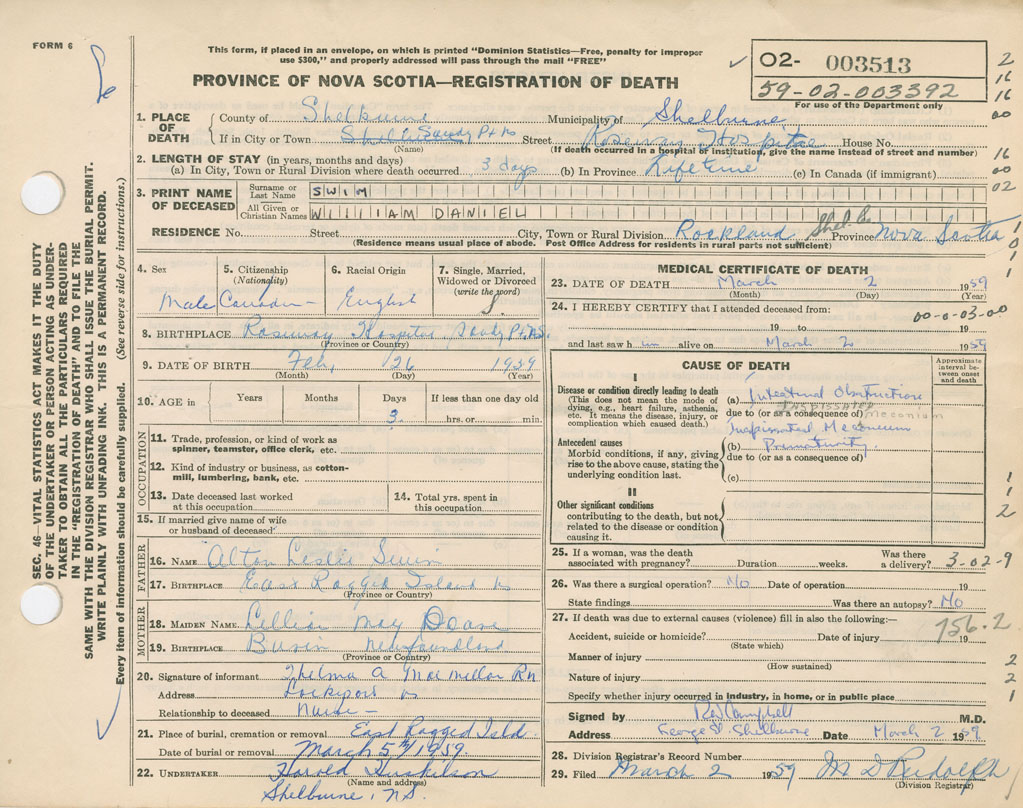 FORM 6
This form, if placed in an envelope, on which is printed "Dominion Statistics—Free, penalty for improper
use $300," and properly addressed will pass through the mail "FREE"
PROVINCE OF NOVA SCOTIA—REGISTRATION OF DEATH
02- 003513
59-02-003392
For use of the Department only
2
16
16
00
16
00
02
SEC. 46—VITAL STATISTICS ACT MAKES IT THE DUTY
OF THE UNDERTAKER OR PERSON ACTING AS UNDER-
TAKER TO OBTAIN ALL THE PARTICULARS REQUIRED
IN THE "REGISTRATION OF DEATH" AND TO FILE THE
SAME WITH THE DIVISION REGISTRAR WHO SHALL ISSUE THE BURIAL PERMIT.
WRITE PLAINLY WITH UNFADING INK. THIS IS A PERMANENT RECORD.
Every item of information should be carefully supplied. (See reverse side for instructions.)
1. PLACE OF DEATH
County of Shelburne Municipality of Shelburne
If in City or Town Sandy Pt Ns Street Roseway Hospital House No.
(Name) (If death occurred in a hospital or institution, give the name instead of street and number)
2. LENGTH OF STAY (in years, months and days)
(a) In City, Town or Rural Division where death occurred 3 days (b) In Province Life time (c) In Canada (if immigrant)
3. PRINT NAME OF DECEASED
Surname or Last Name SWIM
All Given or Christian Names WILLIAM DANIEL
RESIDENCE No. Street City, Town or Rural Division Rockland Shel. Co. Province Nova Scotia
(Residence means usual place of abode. Post Office Address for residents in rural parts not sufficient)
4. Sex
Male
5. Citizenship
(Nationality)
Canadian
6. Racial Origin
English
7. Single, Married,
Widowed or Divorced
(write the word)
S.
8. BIRTHPLACE Roseway Hospital, Sandy Pt NS.
(Province or Country)
9. DATE OF BIRTH Feb, 26 1959
(Month) (Day) (Year)
10. AGE in Years Months Days If less than one day old
3 hrs. or min.
OCCUPATION
11. Trade, profession, or kind of work as
spinner, teamster, office clerk, etc.
12. Kind of industry or business, as cotton-
mill, lumbering, bank, etc.
13. Date deceased last worked
at this occupation
14. Total yrs. spent in
this occupation
15. If married give name of wife
or husband of deceased
FATHER
16. NAME Alton Leslie Swim
17. BIRTHPLACE East Ragged Island Ns
(Province or Country)
MOTHER
18. MAIDEN NAME Lillian May Doane
19. BIRTHPLACE Burin Newfoundland
(Province or Country)
20. Signature of informant Thelma A MacMillan Rn
Address Lockeport Ns
Relationship to deceased Nurse-
21. Place of burial, cremation or removal East Ragged Isld.
Date of burial or removal March 5th/1959.
22. UNDERTAKER Harold Huskilson
(Name and address)
Shelburne, N.S.
MEDICAL CERTIFICATE OF DEATH
23. DATE OF DEATH March 2 1959
(Month) (Day) (Year)
24. I HEREBY CERTIFY that I attended deceased from:
00-0-03-00
19 to 19
and last saw him alive on March 2 1959
CAUSE OF DEATH
Approximate
interval be-
tween onset
and death
I
Disease or condition directly leading to death
(This does not mean the mode of
dying, e.g., heart failure, asthenia,
etc. It means the disease, injury, or
complication which caused death.)
(a) Intestinal Obstruction
INSPISSATED
due to (or as a consequence of) meconium
Inspissated Meconium
Antecedent causes
Morbid conditions, if any, giving
rise to the above cause, stating the
underlying condition last.
(b) Prematurity
due to (or as a consequence of)
(c)
II
Other significant conditions
contributing to the death, but not
related to the disease or condition
causing it.
1
1
2
25. If a woman, was the death
associated with pregnancy? Duration weeks. Was there
a delivery? 3-02-9
26. Was there a surgical operation? No Date of operation 19
State findings Was there an autopsy? No
27. If death was due to external causes (violence) fill in also the following:—
756.2
Accident, suicide or homicide? Date of injury 19
(State which)
Manner of injury 2
(How sustained)
Nature of injury 2
Specify whether injury occurred in industry, in home, or in public place 1
Signed by Campbell M.D.
Address George St Shelburne Date March 2 1959
28. Division Registrar's Record Number
29. Filed March 2 1959 M D Rudolph
(Division Registrar)